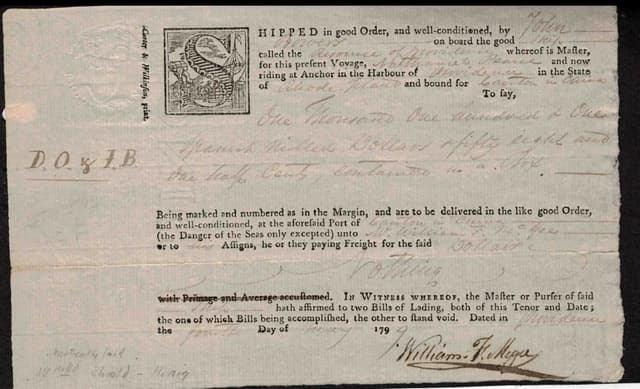 SHIPPED in good Order, and well-conditioned, by John
on board the good Ship
called the Providence whereof is Master,
for this present Voyage, Nathaniel Pearce and now
riding at Anchor in the Harbour of Providence in the State
of Rhode Island and bound for Canton in China
To say,
One Thousand One hundred & One
Spanish Milled Dollars & fifty eight and
one half Cents, contained in a Box
D. O. & I. B.
Carter & Wilkinson, print.
Being marked and numbered as in the Margin, and are to be delivered in the like good Order,
and well-conditioned, at the aforesaid Port of Canton in China
(the Danger of the Seas only excepted) unto Mr. William F. Megee
or to his Assigns, he or they paying Freight for the said Dollars
Nothing
with Primage and Average accustomed. IN WITNESS WHEREOF, the Master or Purser of said
Ship hath affirmed to two Bills of Lading, both of this Tenor and Date;
the one of which Bills being accomplished, the other to stand void. Dated in Providence
the fourth Day of 179 9
William F. Megee